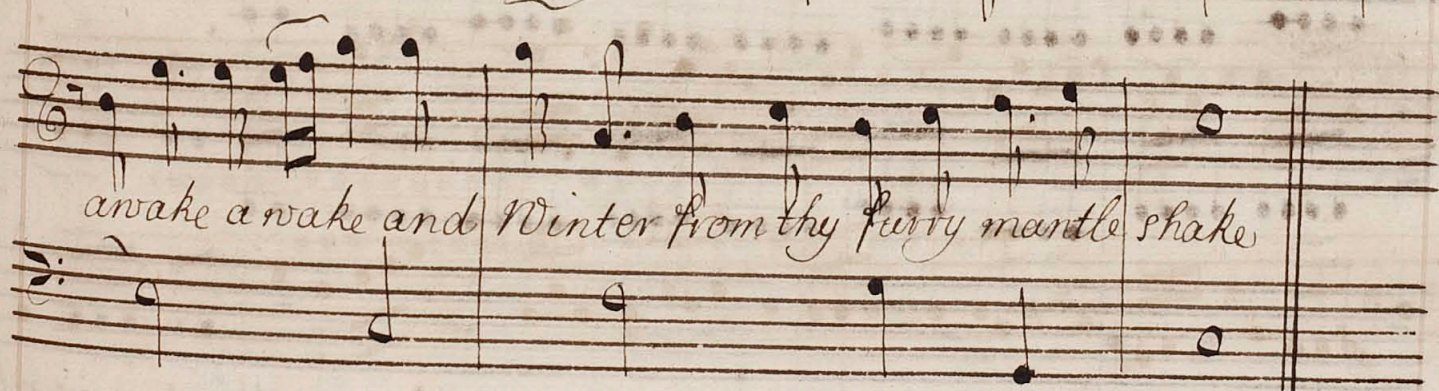 awake a wake and Winter from thy furry mantle shake